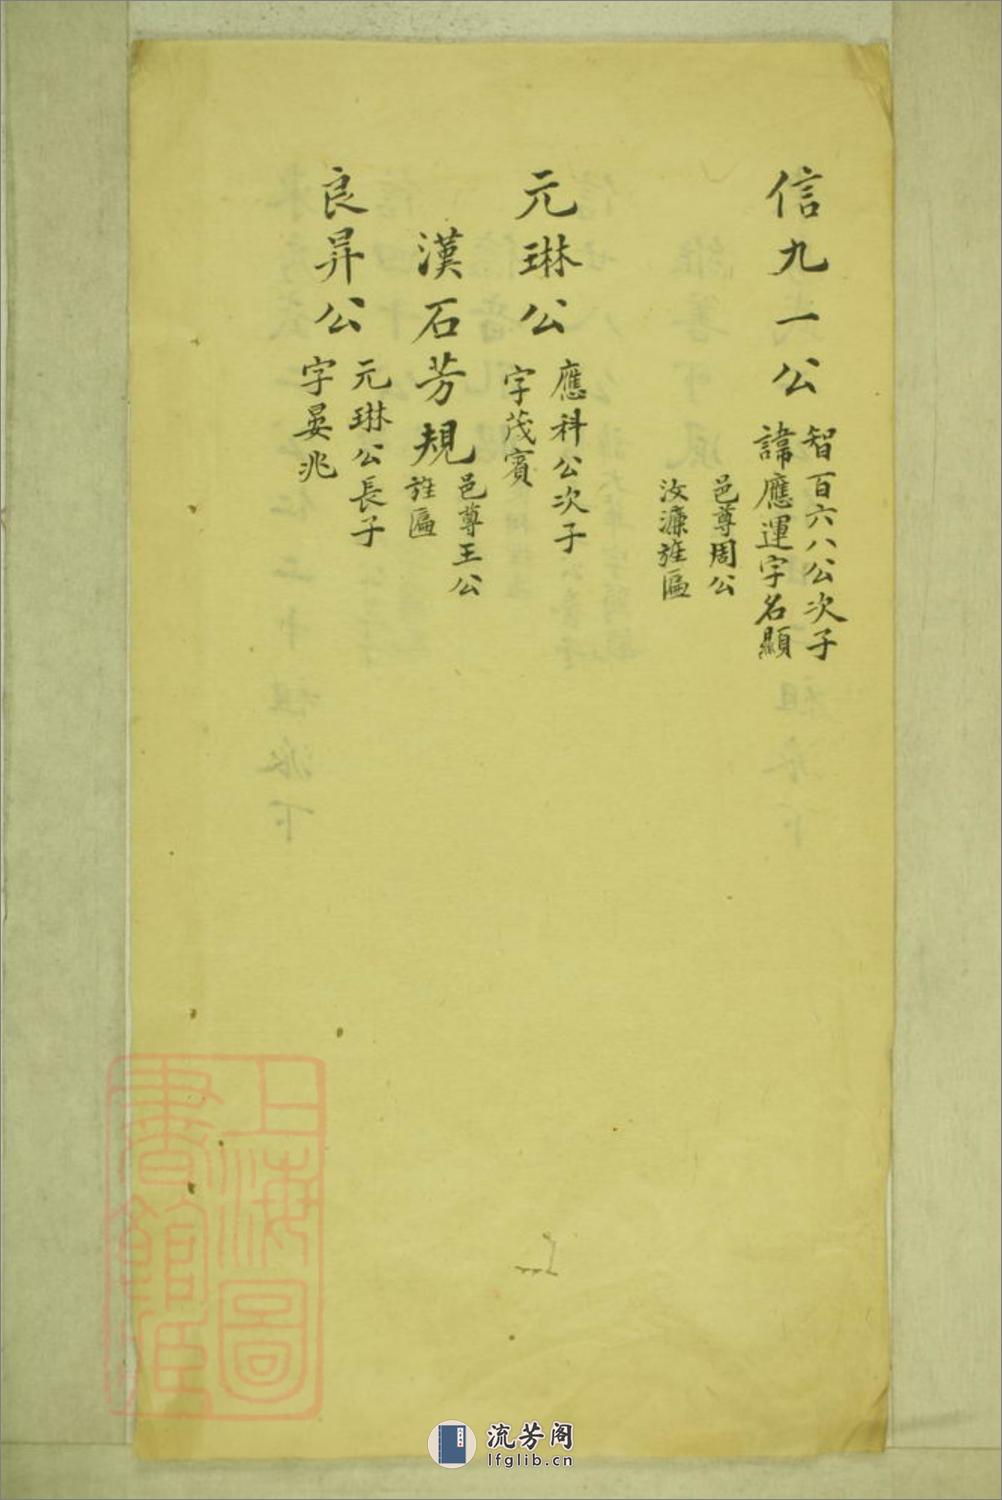 信九一公
智百六八公次子
諱應運字名顯
邑尊周公
汝濂旌匾
元琳公
應科公次子
字茂賓
漢石芳規
邑尊王公
旌匾
良昇公
元琳公長子
字晏兆
上海圖
書館藏
流芳阁
lfglib.cn